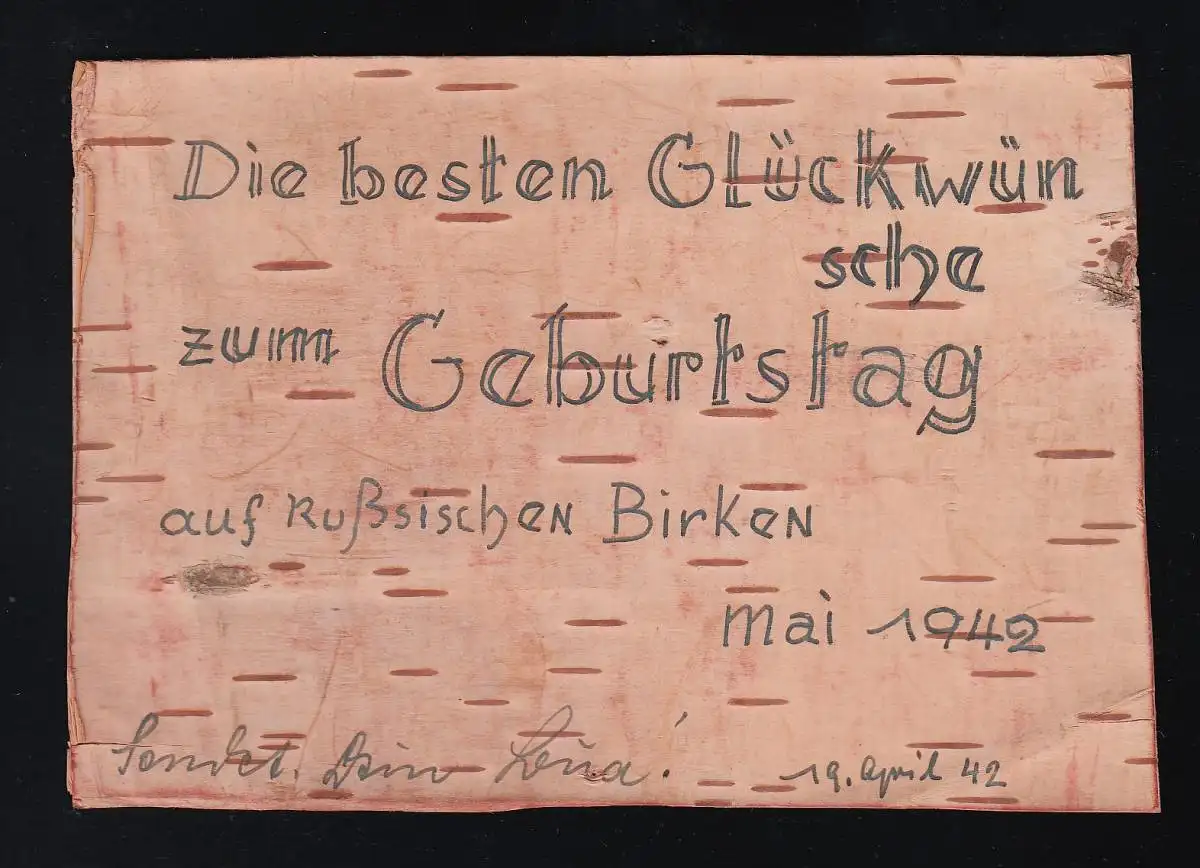 Die besten Glückwün
sche
zum Geburtstag
auf Rußsischen Birken
mai 1942
Sendet. Dein
19. April 42